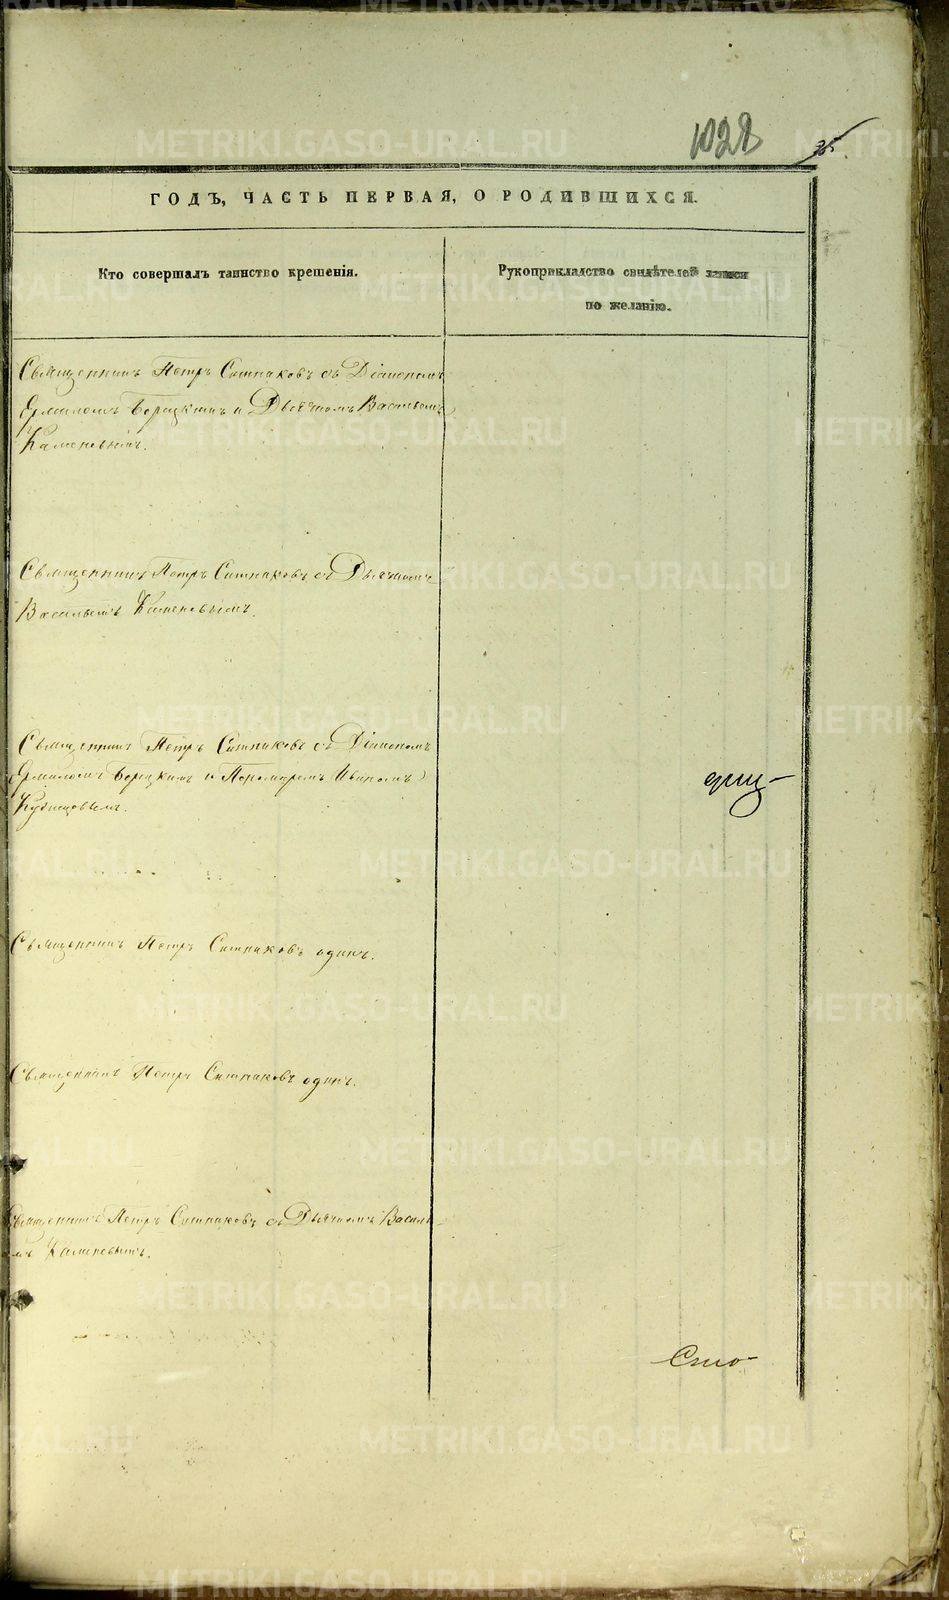 1028
ГОДЪ, ЧАСТЬ ПЕРВАЯ, О РОДИВШИХСЯ.
Кто совершалъ таинство крещенія.
Рукоприкладство свидѣтелей записи
по желанію.
Священникъ Петръ Ситниковъ съ Діакономъ
Ермиломъ и Дьячкомъ Васильемъ
Каменевымъ.
Священникъ Петръ Ситниковъ съ Дьячкомъ
Васильемъ Каменевымъ.
Священникъ Петръ Ситниковъ съ Діакономъ
Ермиломъ и Пономаремъ Иваномъ
Кузнецовымъ.
Священникъ Петръ Ситниковъ одинъ.
Священникъ Петръ Ситниковъ одинъ.
Священникъ Петръ Ситниковъ съ Дьячкомъ Василь-
емъ Каменевымъ.
Сто-
METRIKI.GASO-URAL.RU